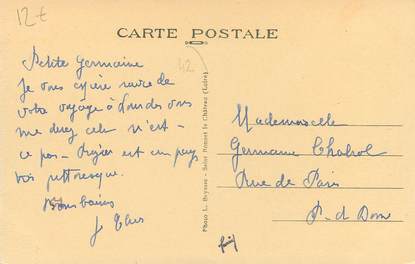 12€
CARTE POSTALE
42
Petite Germaine
Je vous espère ravie de
votre voyage à
me direz cela n'est-
ce pas - est un pays
très pittoresque.
Bons baisers
Photo L. Beysson - Saint Bonnet le Château (Loire)
Mademoiselle
Germaine Chabrol
Rue de Paris
P. d Dome